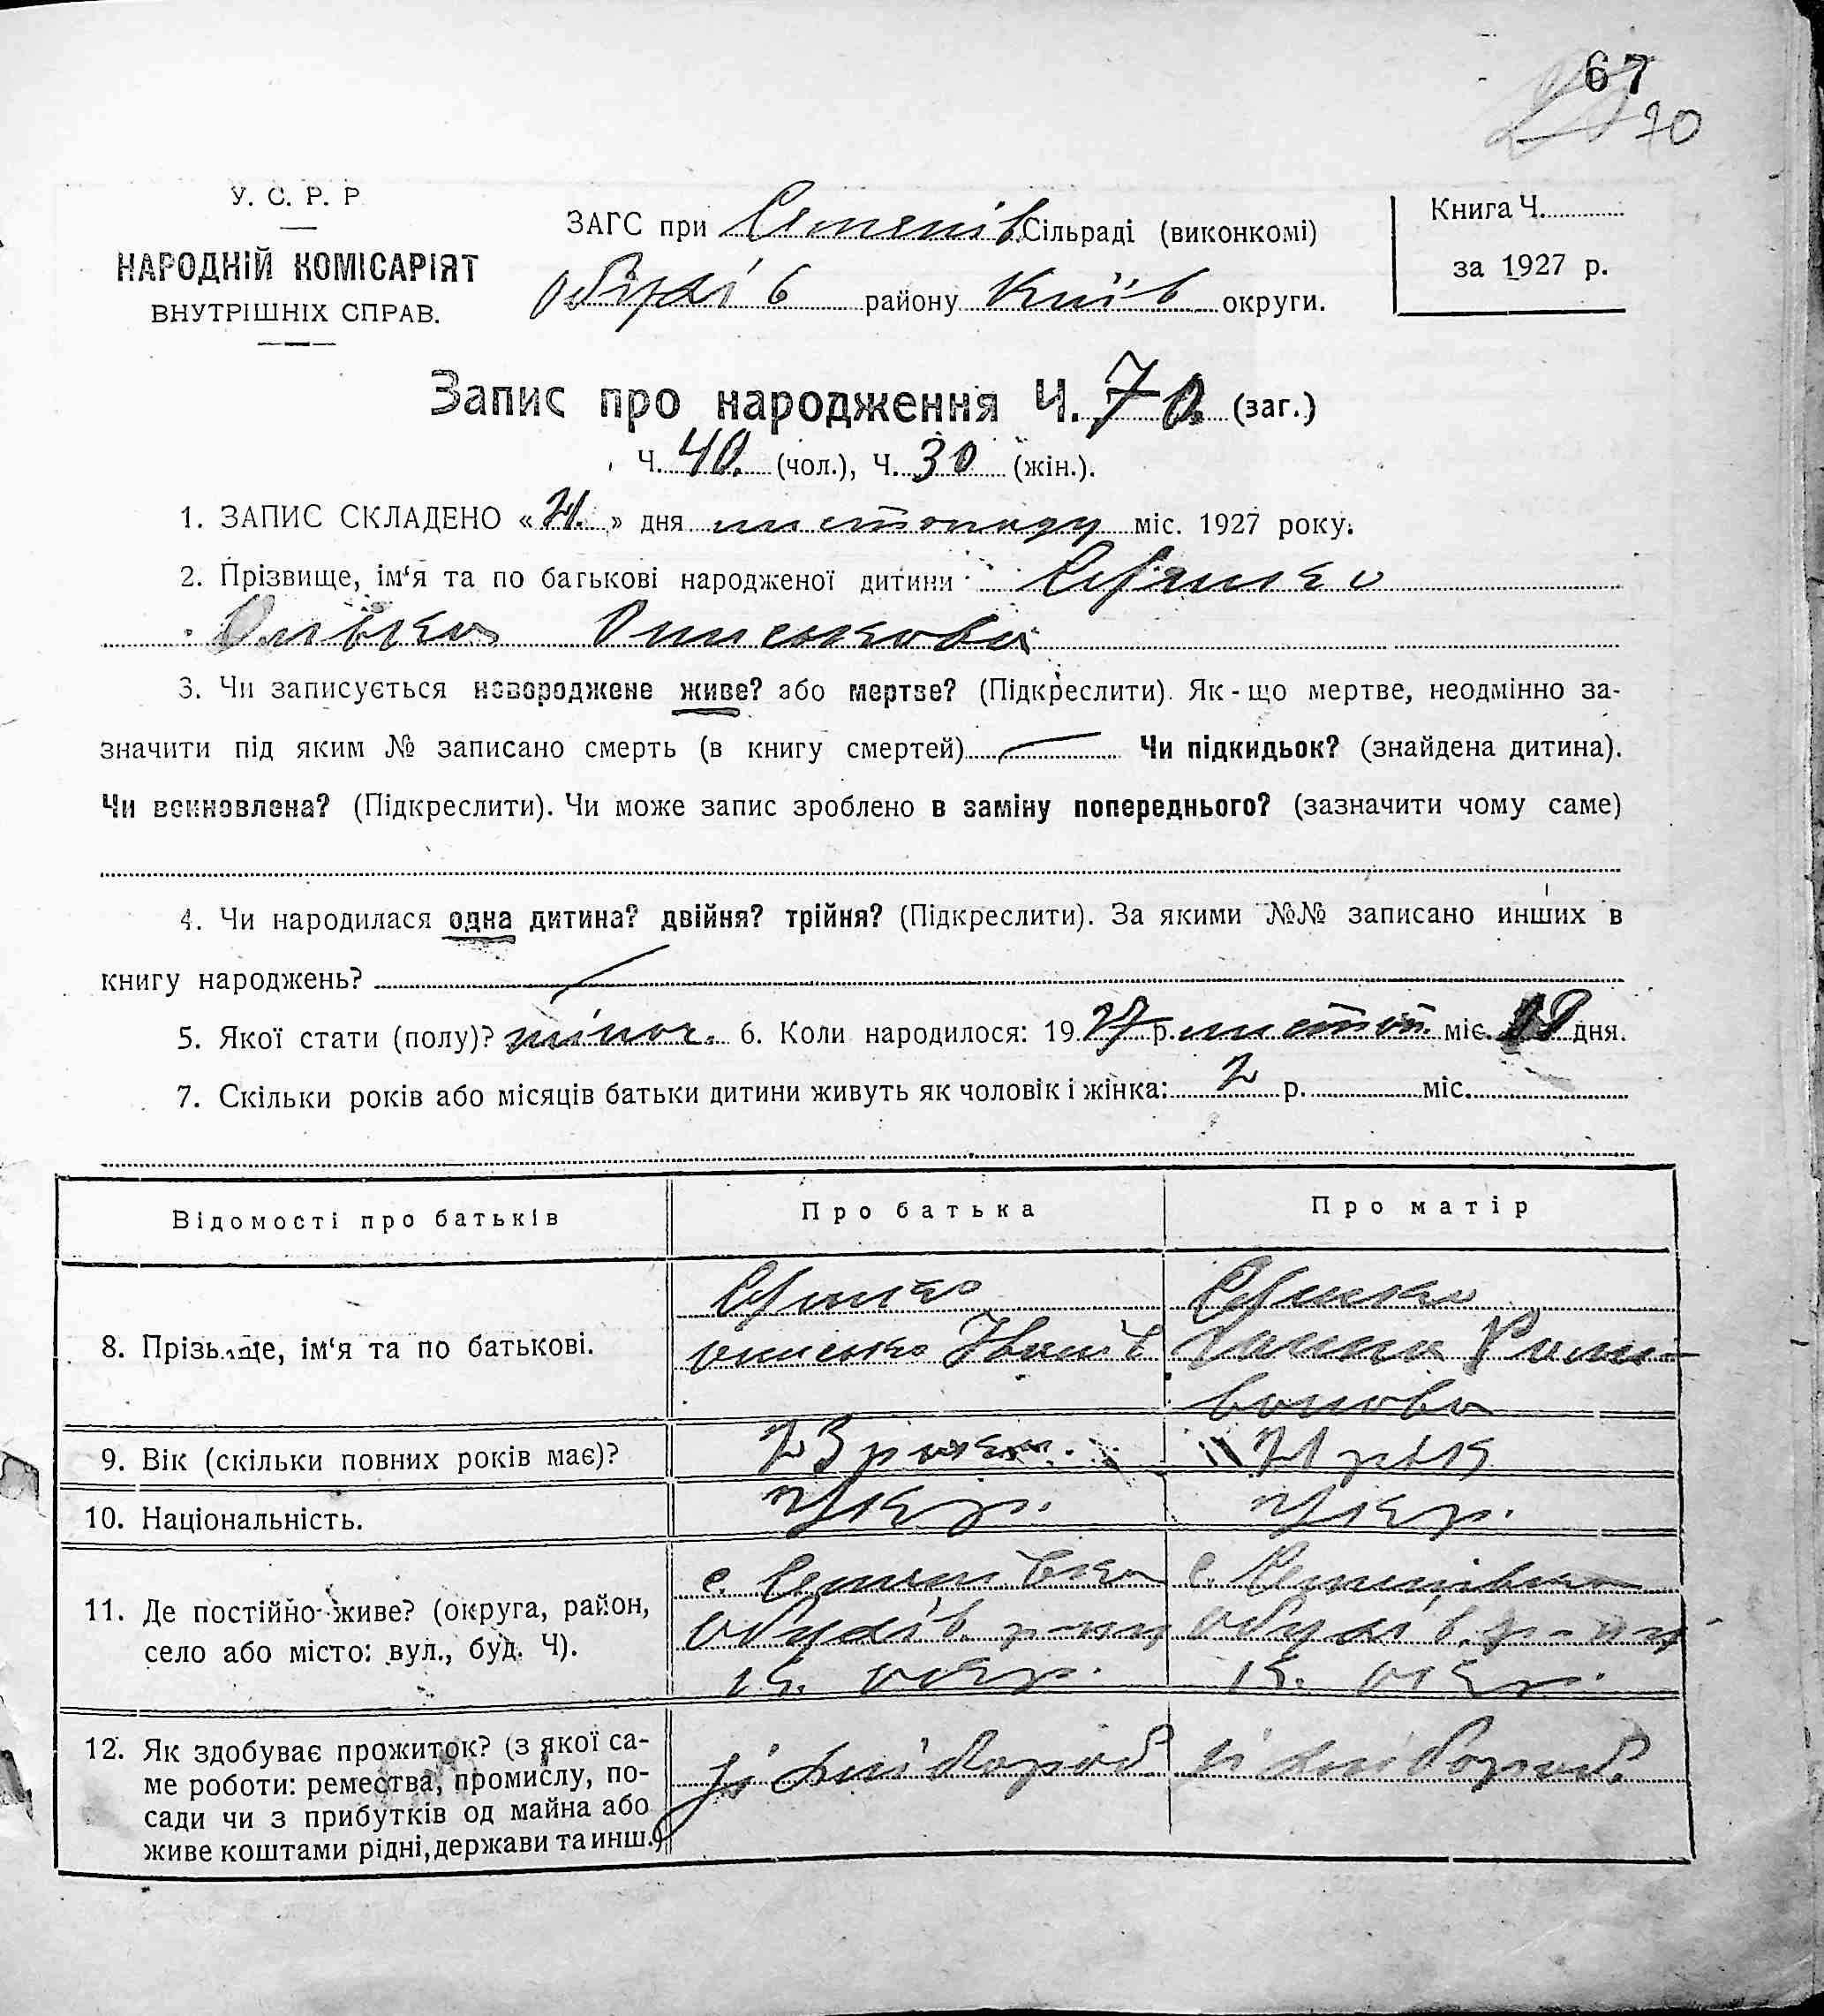 67
70
У. С. Р. Р
НАРОДНІЙ КОМІСАРІЯТ
ВНУТРІШНІХ СПРАВ.
ЗАГС при Семенів Сільраді (виконкомі)
Обухів району Київ округи.
Книга Ч.
за 1927 р.
Запис про народження Ч. 70. (заг.)
Ч. 40. (чол.), Ч. 30 (жін.).
1. ЗАПИС СКЛАДЕНО « 21. » дня листопаду міс. 1927 року.
2. Прізвище, ім‘я та по батькові народженої дитини
Ониськова
3. Чи записується новороджене живе? або мертве? (Підкреслити). Як-що мертве, неодмінно за-
значити під яким № записано смерть (в книгу смертей) Чи підкидьок? (знайдена дитина).
Чи всиновлена? (Підкреслити). Чи може запис зроблено в заміну попереднього? (зазначити чому саме)
4. Чи народилася одна дитина? двійня? трійня? (Підкреслити). За якими №№ записано инших в
книгу народжень?
5. Якої стати (полу)? жіноч. 6. Коли народилося: 19 27 р. листоп. міс. дня.
7. Скільки років або місяців батьки дитини живуть як чоловік і жінка: 2 р. міс.
Відомості про батьків Про батька Про матір
8. Прізвище, ім‘я та по батькові.
Онисько Іванів
Ганна
9. Вік (скільки повних років має)? 23 роки. 21 рік
10. Національність. Укр. Укр.
11. Де постійно живе? (округа, район,
село або місто: вул., буд. Ч).
с. Семенівка
Обухів. р-ну
к. окр.
с. Семенівка
Обухів. р-ну
к. окр.
12. Як здобуває прожиток? (з якої са-
ме роботи: ремества, промислу, по-
сади чи з прибутків од майна або
живе коштами рідні, держави та инш.)
хлібороб.
хлібороб.